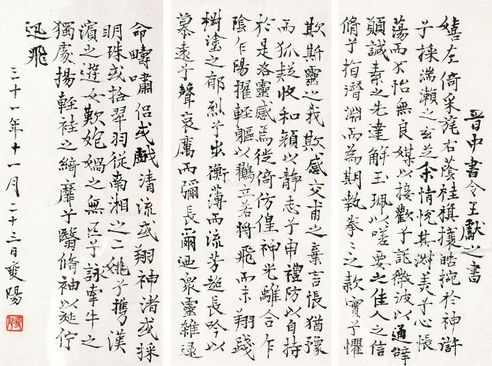 晋中書令王獻之書
嬉左倚采旄右蔭桂旗攘皓捥於神滸
兮採湍瀨之玄芝余情悅其淑美兮心振
蕩而不怡無良媒以接歡兮託微波以通辭
願誠素之先達解玉珮以嗟要之佳人之信
脩兮指潛淵而為期執拳拳之款實兮懼
欺斯靈之我欺感交甫之棄言悵猶豫
而狐疑收和顏以静志兮申禮防以自持
於是洛靈感焉徙倚仿偟神光離合乍
陰乍陽擢輕軀以鶴立若將飛而未翔踐
椒塗之郁烈兮步衡薄而流芳超長吟以
慕遠兮聲哀厲而彌長爾迺衆靈雜遝
命疇嘯侶或戲清流或翔神渚或採
明珠或拾翠羽從南湘之二姚兮攜漢
濱之遊女歎匏媧之無匹兮詠牽牛之
獨處揚輕袿之綺靡兮翳脩袖以延佇
迅飛
三十一年十一月二十三日